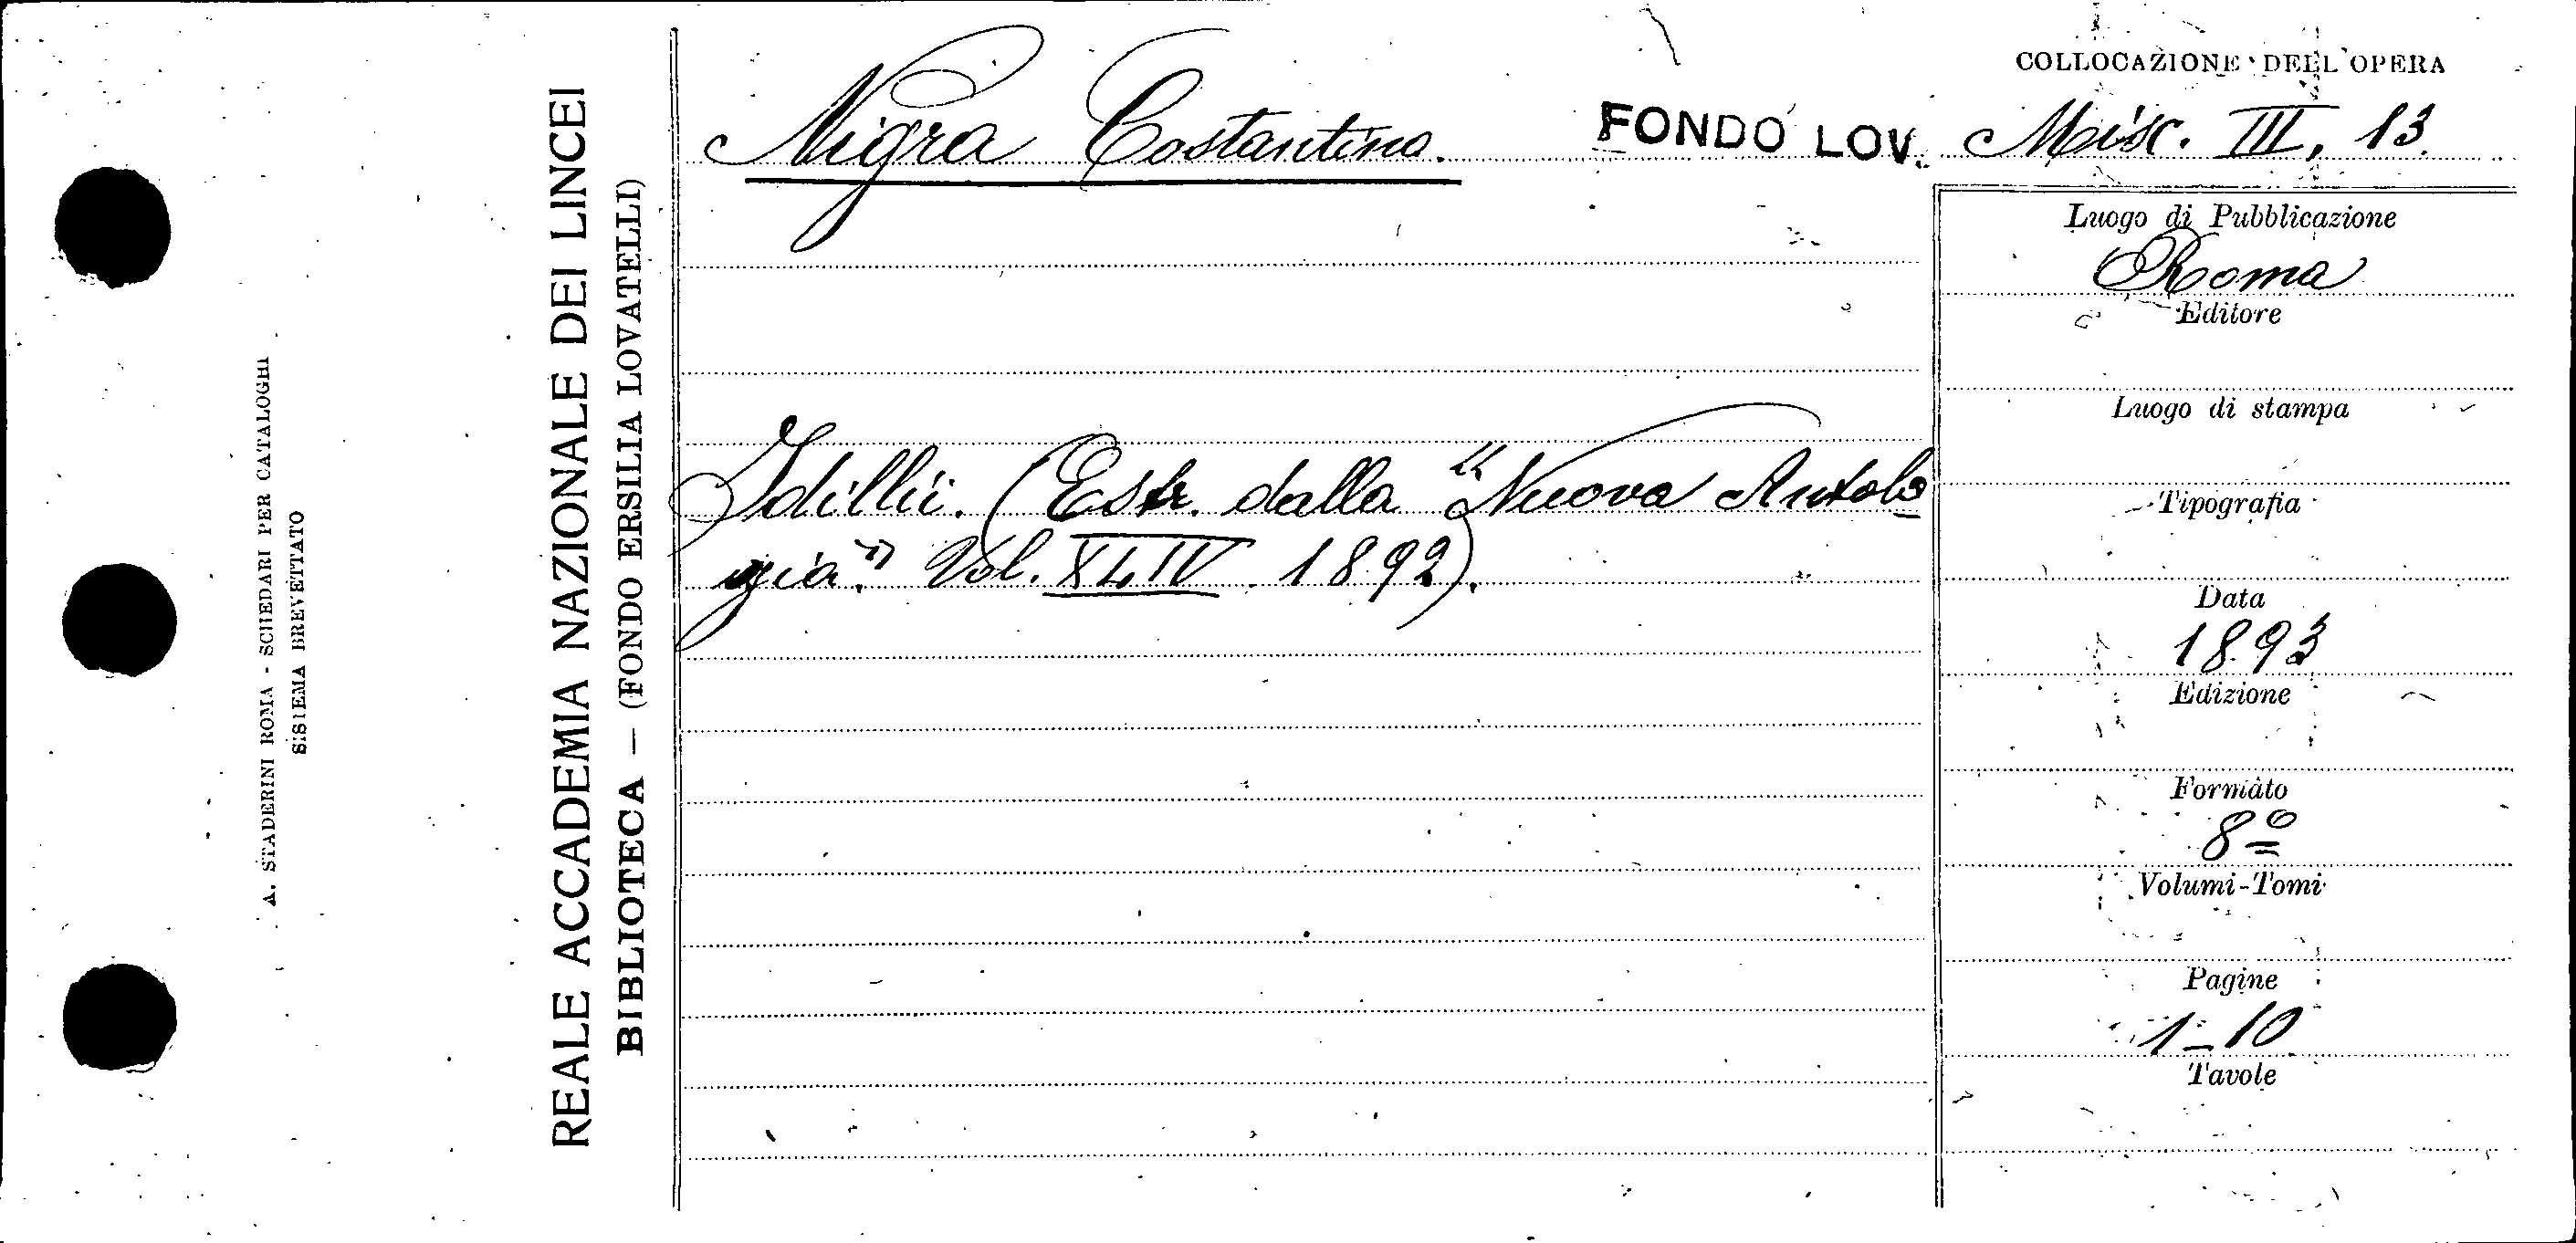 A. STADERINI ROMA - SCHEDARI PER CATALOGHI
SISTEMA BREVETTATO
REALE ACCADEMIA NAZIONALE DEI LINCEI
BIBLIOTECA — (FONDO ERSILIA LOVATELLI)
COLLOCAZIONE DELL'OPERA
Nigra Costantino. FONDO LOV. Misc. III, 13.
Idillii. (Estr. dalla "Nuova Antolo
gia" Vol. XLIV. 1892).
Luogo di Pubblicazione
Roma
Editore
Luogo di stampa
Tipografia
Data
1893
Edizione
Formato
8º
Volumi-Tomi
Pagine
1-10
Tavole